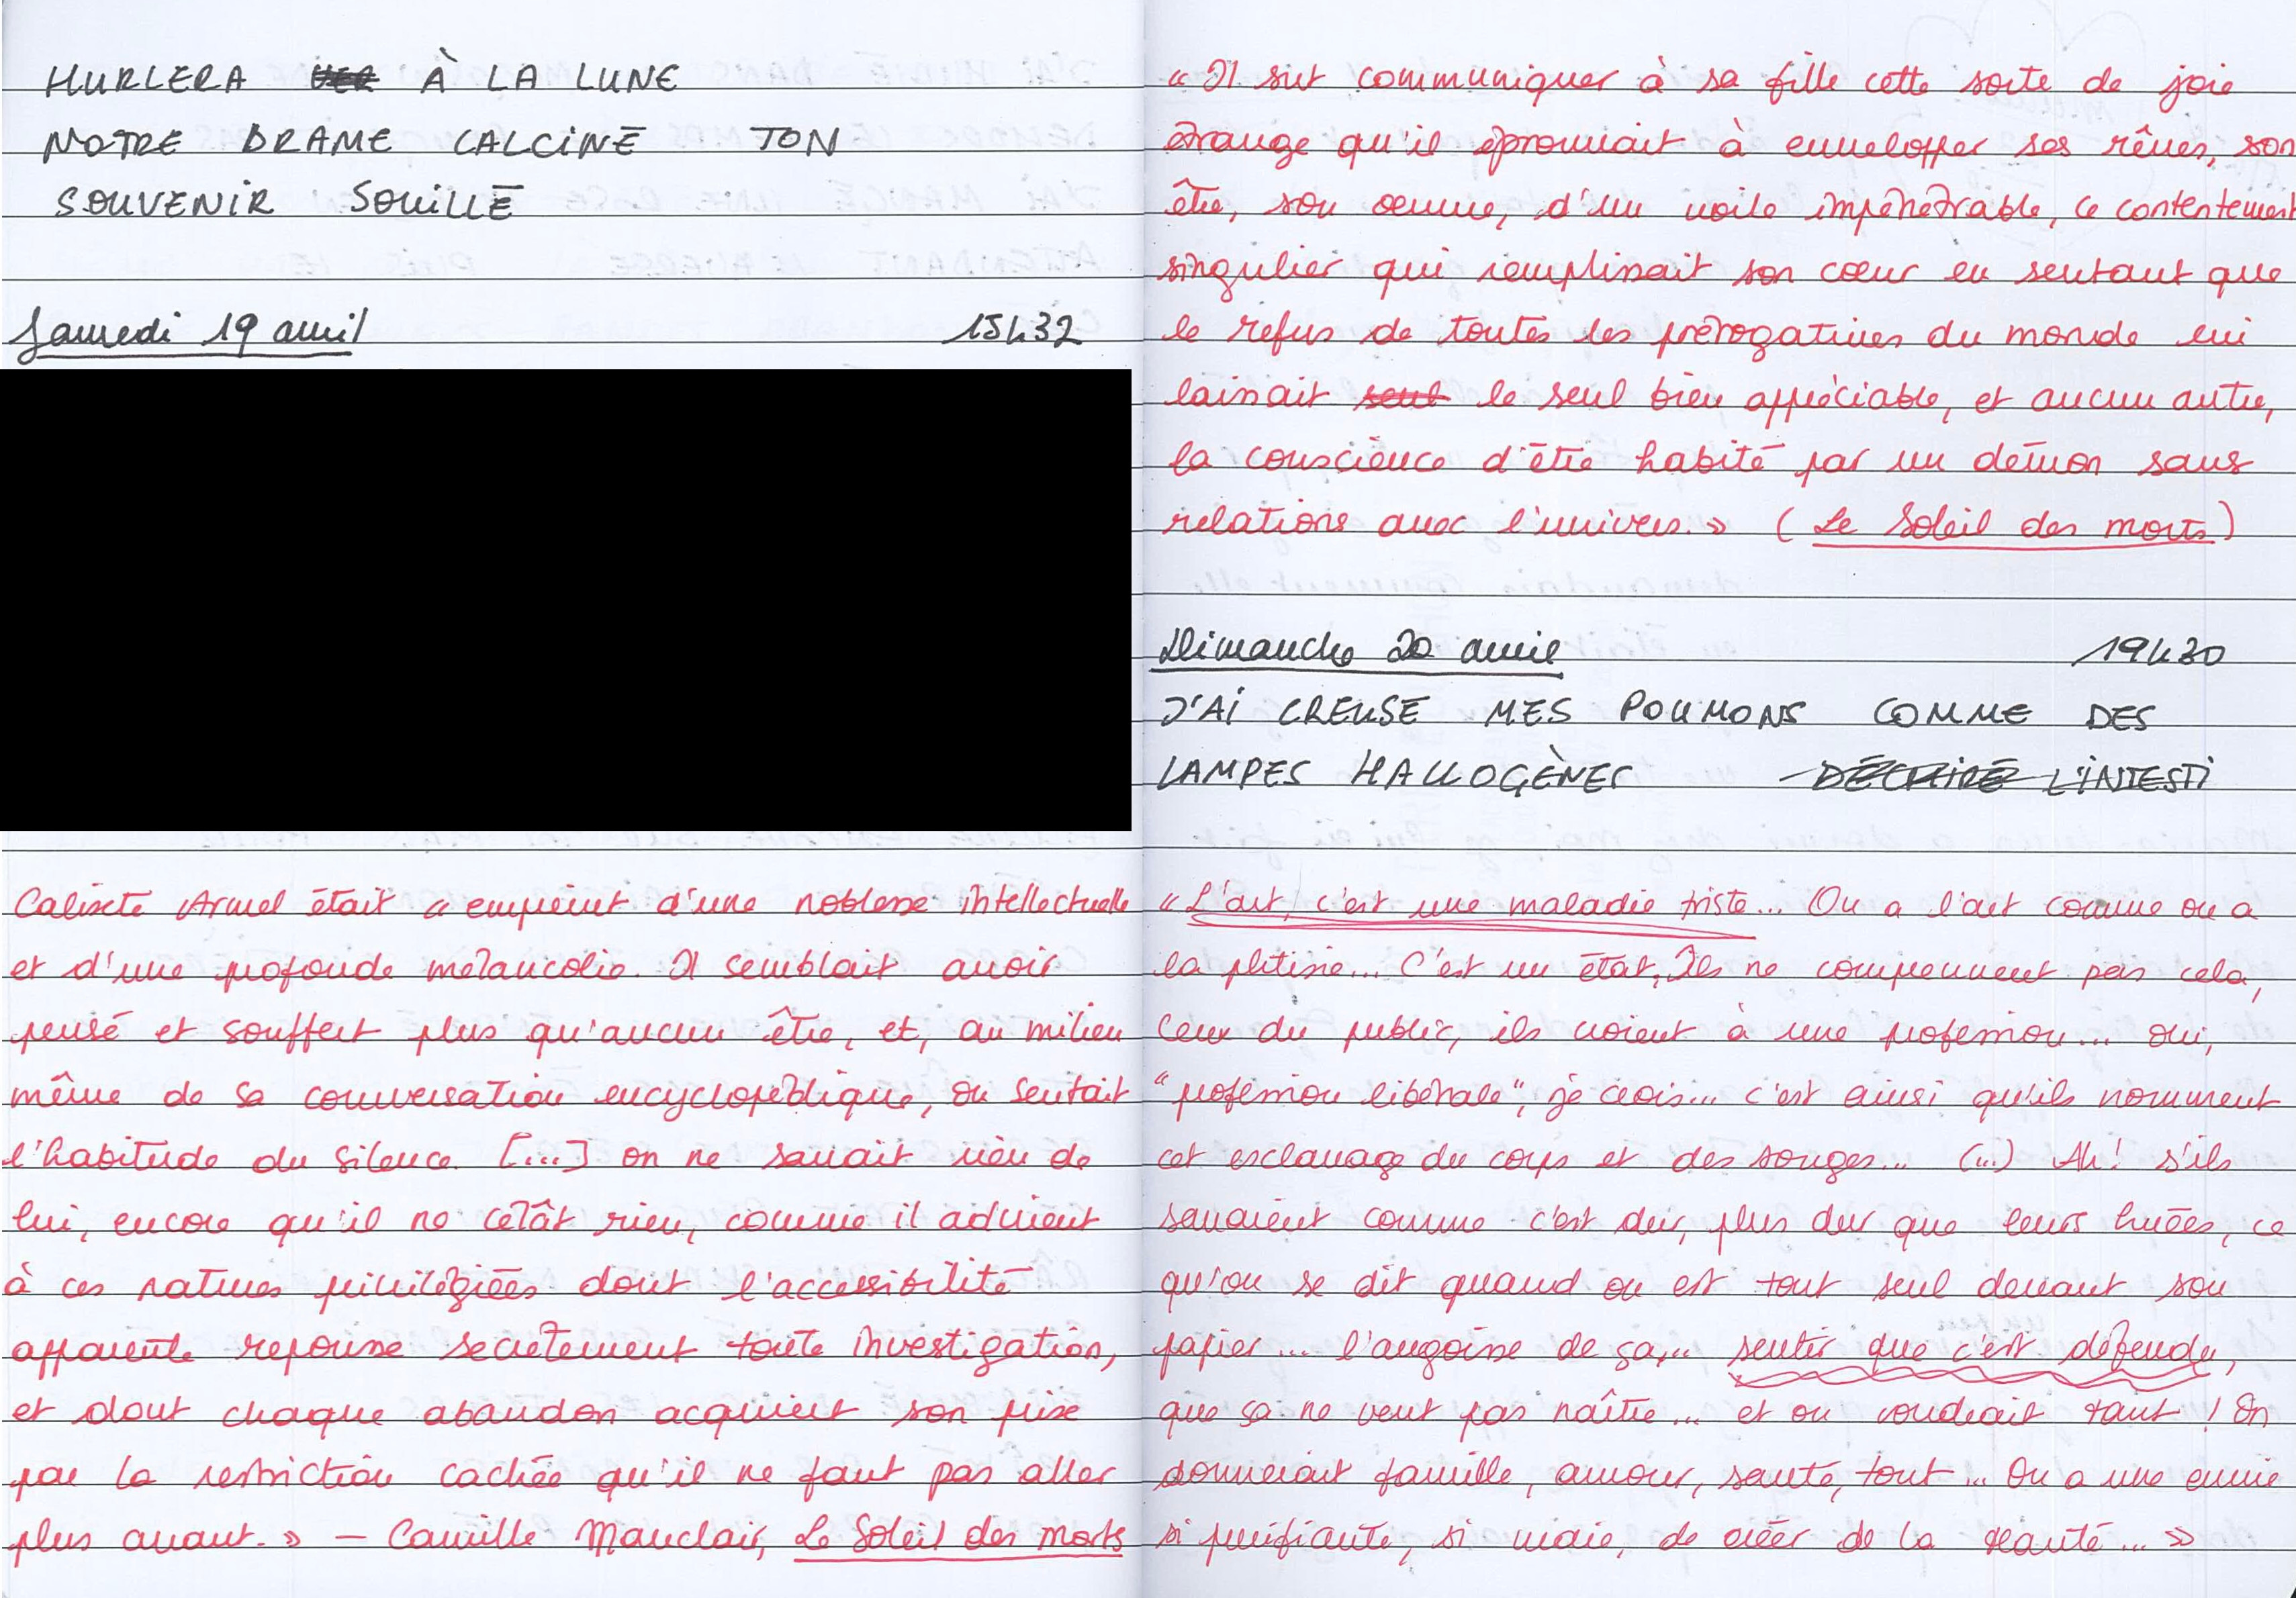 HURLERA À LA LUNE
NOTRE DRAME CALCINÉ TON
SOUVENIR SOUILLÉ
Samedi 19 avril 15h32
Calixte Armel était « empreint d'une noblesse intellectuelle
et d'une profonde mélancolie. Il semblait avoir
pensé et souffert plus qu'aucun être, et, au milieu
même de sa conversation encyclopédique, on sentait
l'habitude du silence. [...] on ne savait rien de
lui, encore qu'il ne celât rien, comme il advient
à ces natures privilégiées dont l'accessibilité
apparente repousse secrètement toute investigation,
et dont chaque abandon acquiert son prix
par la restriction cachée qu'il ne faut pas aller
plus avant. » — Camille Mauclair, Le Soleil des morts
« Il sut communiquer à sa fille cette sorte de joie
étrange qu'il éprouvait à envelopper ses rêves, son
être, son oeuvre, d'un voile impénétrable, ce contentement
singulier qui remplissait son cœur en sentant que
le refus de toutes les prérogatives du monde lui
laissait seul le seul bien appréciable, et aucun autre,
la conscience d'être habité par un démon sans
relations avec l'univers. » (Le Soleil des morts)
Dimanche 20 avril 19h30
J'AI CREUSÉ MES POUMONS COMME DES
LAMPES HALLOGÈNES DÉCHIRÉ L'INTESTI
« L'art, c'est une maladie triste... On a l'art comme on a
la phtisie... C'est un état, Ils ne comprennent pas cela,
ceux du public, ils voient à une profession... oui,
"profession libérale", je crois... c'est ainsi qu'ils nomment
cet esclavage du corps et des songes... (...) Ah! s'ils
savaient comme c'est dur, plus dur que leurs huées, ce
qu'on se dit quand on est tout seul devant son
papier... l'angoisse de ça,... sentir que c'est défendu,
que ça ne veut pas naître... et on voudrait tant ! On
donnerait famille, amour, santé, tout... On a une envie
si purifiante, si vraie, de créer de la beauté... »